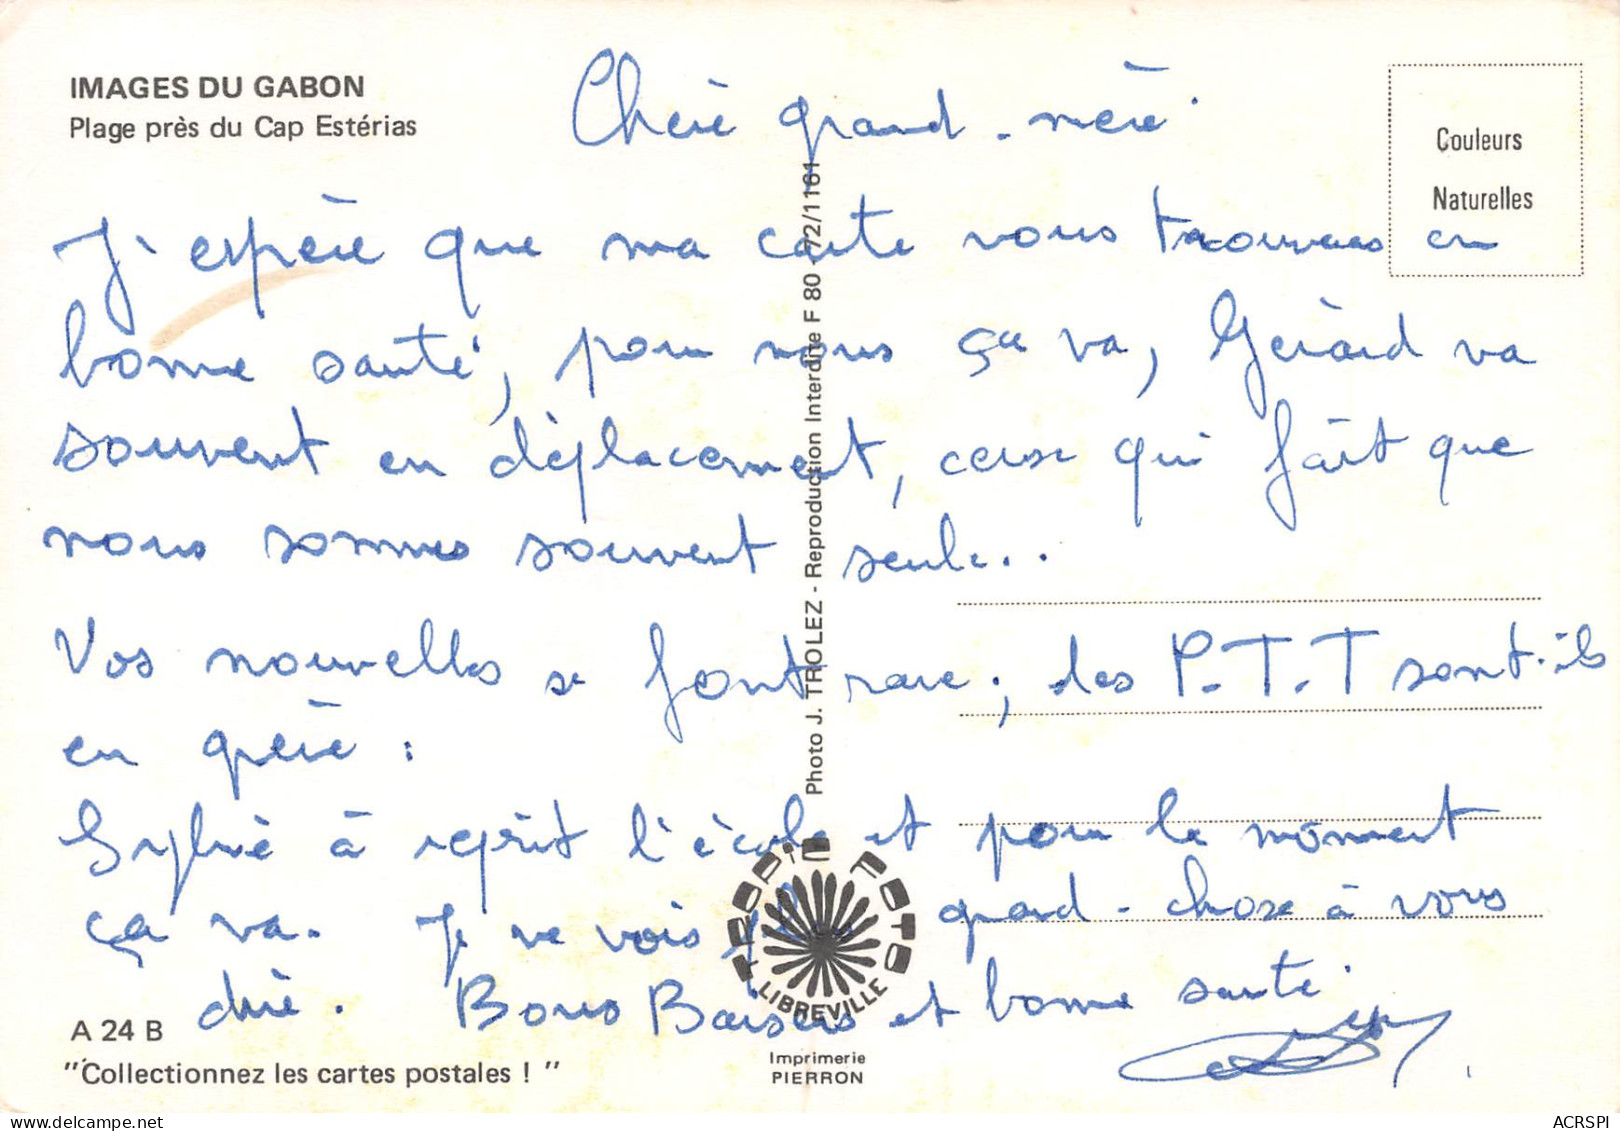 IMAGES DU GABON
Plage près du Cap Estérias
Couleurs
Naturelles
Chère grand-mère
J'espère que ma carte vous trouvera en
bonne santé, pour nous ça va, Gérard va
souvent en déplacement, ce qui fait que
nous sommes souvent seule..
Vos nouvelles se font rare; les P.T.T sont-ils
en grève :
Sylvie à reprit l'école et pour le moment
ça va. Je ne vois plus grand-chose à vous
dire. Bons Baisers et bonne santé
Photo J. TROLEZ - Reproduction Interdite F 80 72/1161
TROPIC FOTO
LIBREVILLE
Imprimerie
PIERRON
A 24 B
"Collectionnez les cartes postales ! "
ACRSPI